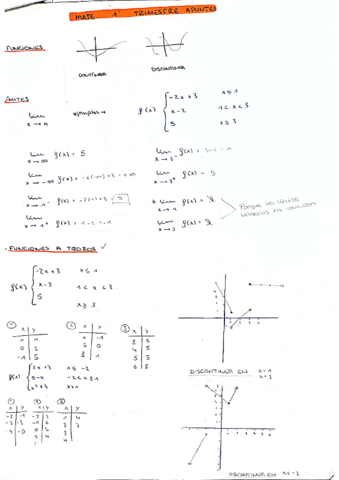 MATE 1º TRIMESTRE APUNTES
FUNCIONES
CONTINUA
DISCONTINUA
LÍMITES
lim x→1
ejemplos→
f(x) { -2x+3 x≤1
x-2 1<x<3
5 x≥3
lim x→∞ f(x) = 5
lim x→3⁻ f(x) = 3-2 = 1
lim x→-∞ f(x)
lim x→3⁺ f(x) = 5
lim x→1⁻ f(x)
lim x→1 f(x) =
lim x→1⁺ f(x) = 1-2 = -1
lim x→3 f(x) =
Porque los límites laterales no coinciden
FUNCIONES A TROZOS ✓
f(x) { -2x+3 x≤1
x-2 1<x<3
5 x≥3
① x y
1 1
0 3
-1 5
② x y
1 -1
2 0
3 1
③ x y
3 5
4 5
5 5
6 5
DISCONTINUA EN x=1
x=3
f(x) { 2x+3 x≤-2
5-x -2<x≤1
x²+3 x>1
① x y
-2 -1
-3 -3
-4 -5
② x y
③ x y
1 4
2 7
3
4
DISCONTINUA EN x=-2